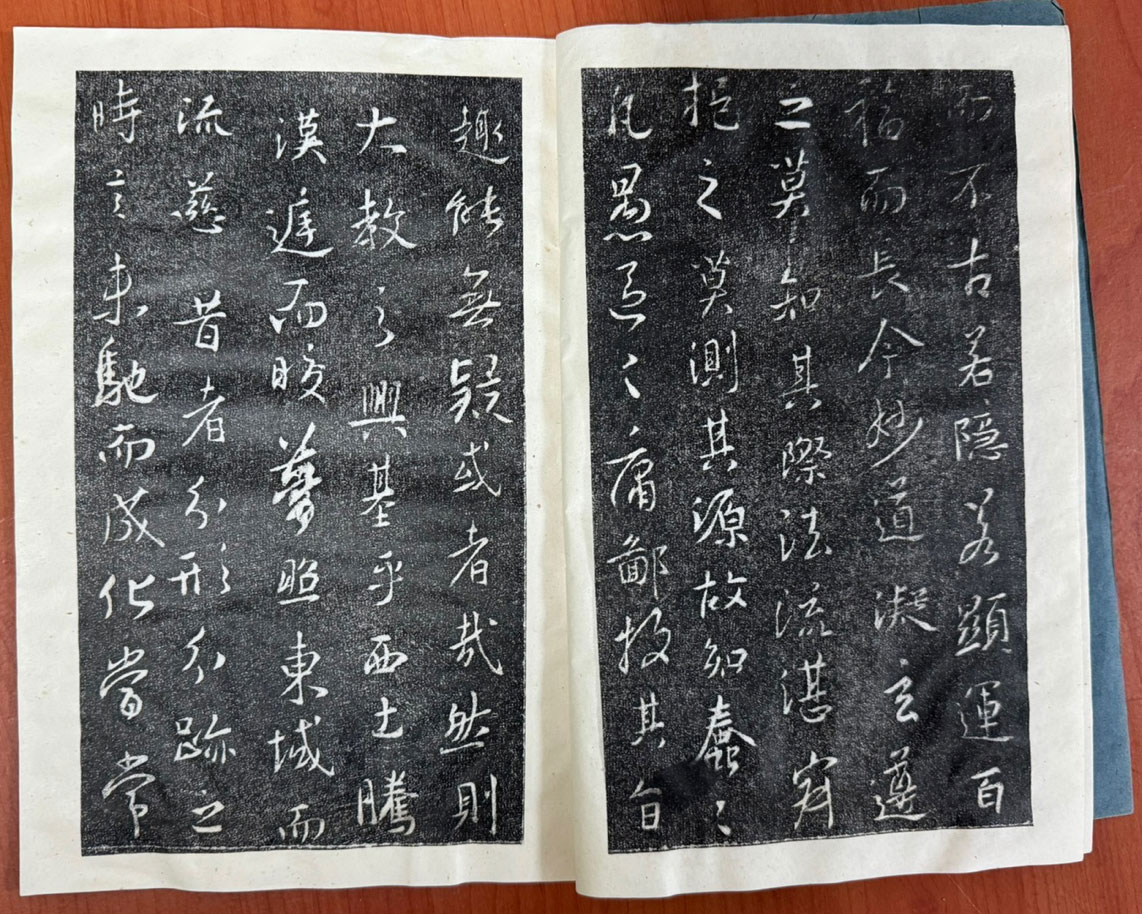 而不古若隱若顯運百
福而長今妙道凝玄遵
之莫知其際法流湛寂
挹之莫測其源故知蠢〻
凡愚區〻庸鄙投其旨
趣能無疑或者哉然則
大教之興基乎西土騰
漢庭而皎夢照東域而
流慈昔者分形分跡之
時言未馳而成化當常